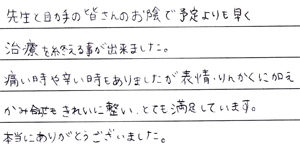 先生と助手の皆さんのお陰で予定よりも早く
治療を終える事が出来ました。
痛い時や辛い時もありましたが表情・りんかくに加え
かみ合せもきれいに整い、とても満足しています。
本当にありがとうございました。